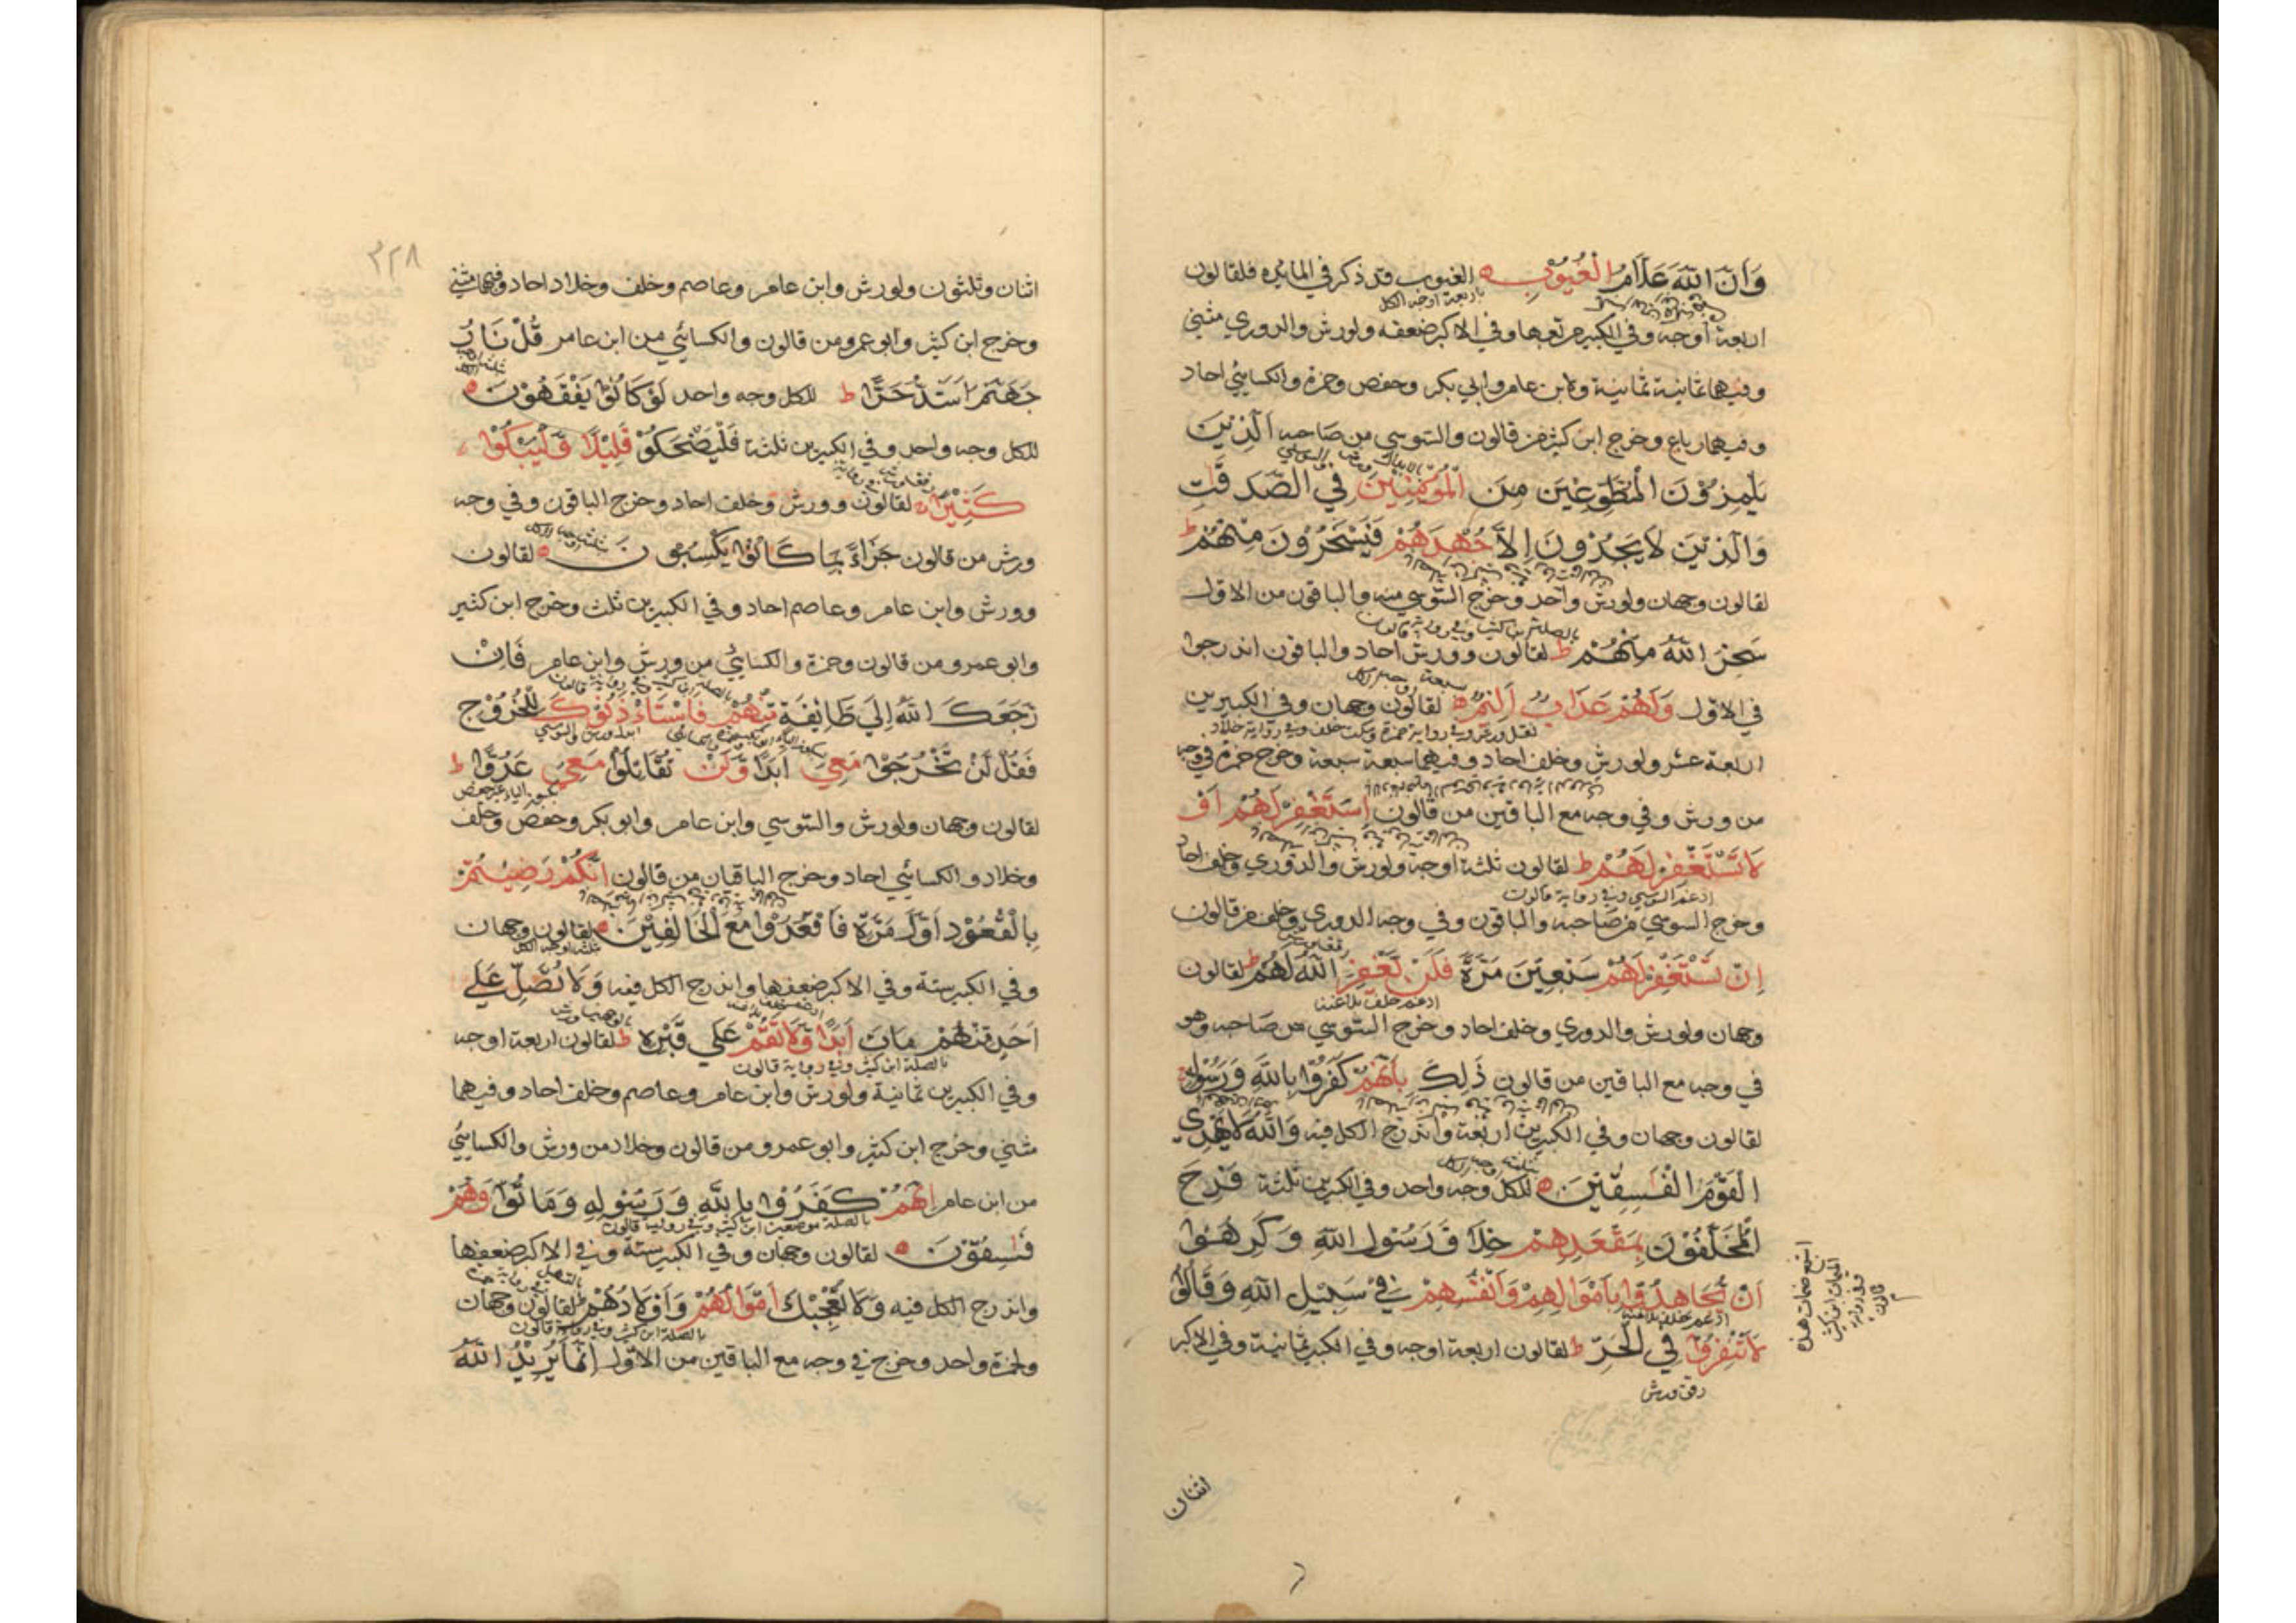 وَاَنَّ اللّٰهَ عَلَّامُ الْغُيُوْبِ الغيوب قد ذكر في المايده فلقالون
باربعة اوجه الكل
اربعة اوجه وفي الكبير مربعها وفي الاكبر ضعفه ولورش والدوري مثنى
وفيهما ثمانية ثمانية ولابن عامر وابي بكر وحفص وحمزة والكسائي احاد
وفيهما رباع وخرج ابن كثير من قالون والسوسي من صاحبه اَلَّذِيْنَ
يَلْمِزُوْنَ الْمُطَّوِّعِيْنَ مِنَ الْمُؤْمِنِيْنَ فِي الصَّدَقٰتِ
وَالَّذِيْنَ لَا يَجِدُوْنَ اِلَّا جُهْدَهُمْ فَيَسْخَرُوْنَ مِنْهُمْ ط
لقالون وجهان ولورش واحد وخرج السوسي منه والباقون من الاول
بالصلة ابن كثير وفي رواية قالون
سَخِرَ اللّٰهُ مِنْهُمْ ط لقالون وورش احاد والباقون اندرجوا
سبعة اوجه الكل
في الاول وَلَهُمْ عَذَابٌ اَلِيْمٌ لقالون وجهان وفي الكبيرين
لنقل ورش وفي رواية حمزة وسكت خلف وفي رواية خلاد
اربعة عشر ولورش وخلف احاد وفيهما سبعة سبعة وخرج حمزة في وجه
من ورش وفي وجه مع الباقين من قالون اِسْتَغْفِرْ لَهُمْ اَوْ
لَا تَسْتَغْفِرْ لَهُمْ ط لقالون ثلثة اوجه ولورش والدوري وخلف احاد
ادغم السوسي وفي رواية قالون
وخرج السوسي من صاحبه والباقون وفي وجه الدوري وخلف من قالون
اِنْ تَسْتَغْفِرْ لَهُمْ سَبْعِيْنَ مَرَّةً فَلَنْ يَّغْفِرَ اللّٰهُ لَهُمْ ط لقالون
ادغم خلف بلا غنة
وجهان ولورش والدوري وخلف احاد وخرج السوسي من صاحبه وهو
في وجه مع الباقين من قالون ذٰلِكَ بِاَنَّهُمْ كَفَرُوْا بِاللّٰهِ وَرَسُوْلِهٖ
لقالون وجهان وفي الكبيرين اربعة واندرج الكل فيه وَاللّٰهُ لَا يَهْدِي
ثلثة اوجه الكل
الْقَوْمَ الْفٰسِقِيْنَ للكل وجه واحد وفي الكبيرين ثلثة فَرِحَ
الْمُخَلَّفُوْنَ بِمَقْعَدِهِمْ خِلَافَ رَسُوْلِ اللّٰهِ وَكَرِهُوْا
اَنْ يُّجَاهِدُوْا بِاَمْوَالِهِمْ وَاَنْفُسِهِمْ فِيْ سَبِيْلِ اللّٰهِ وَقَالُوْا
ادغم خلف بلا غنة
لَا تَنْفِرُوْا فِي الْحَرِّ ط لقالون اربعة اوجه وفي الكبير ثمانية وفي الاكبر
رقق ورش
اثنان
٣٢٨
اثنان وثلثون ولورش وابن عامر وعاصم وخلف وخلاد احاد وفيهما مثنى
وخرج ابن كثير وابو عمرو من قالون والكسائي من ابن عامر قُلْ نَارُ
جَهَنَّمَ اَشَدُّ حَرًّا ط للكل وجه واحد لَوْ كَانُوْا يَفْقَهُوْنَ
للكل وجه واحد وفي الكبيرين ثلثة فَلْيَضْحَكُوْا قَلِيْلًا وَّلْيَبْكُوْا
كَثِيْرًا لقالون وورش وخلف احاد وخرج الباقون وفي وجه
ثلثة اوجه الكل
ورش من قالون جَزَاءً بِمَا كَانُوْا يَكْسِبُوْنَ لقالون
وورش وابن عامر وعاصم احاد وفي الكبيرين ثلث وخرج ابن كثير
وابو عمرو من قالون وحمزة والكسائي من ورش وابن عامر فَاِنْ
بالصلة ابن كثير وفي رواية قالون
رَّجَعَكَ اللّٰهُ اِلٰي طَائِفَةٍ مِّنْهُمْ فَاسْتَاْذَنُوْكَ لِلْخُرُوْجِ
ابدل ورش والسوسي
فَقُلْ لَّنْ تَخْرُجُوْا مَعِيَ اَبَدًا وَّلَنْ تُقَاتِلُوْا مَعِيَ عَدُوًّا ط
بفتح الياء حفص
لقالون وجهان ولورش والسوسي وابن عامر وابو بكر وحفص وخلف
وخلاد والكسائي احاد وخرج الباقيان من قالون اِنَّكُمْ رَضِيْتُمْ
بِالْقُعُوْدِ اَوَّلَ مَرَّةٍ فَاقْعُدُوْا مَعَ الْخَالِفِيْنَ لقالون وجهان
ثلثة اوجه الكل
وفي الكبير ستة وفي الاكبر ضعفها واندرج الكل فيه وَلَا تُصَلِّ عَلٰي
اَحَدٍ مِّنْهُمْ مَاتَ اَبَدًا وَّلَا تَقُمْ عَلٰي قَبْرِهٖ ط لقالون اربعة اوجه
بالصلة ابن كثير وفي رواية قالون
وفي الكبيرين ثمانية ولورش وابن عامر وعاصم وخلف احاد وفيهما
مثنى وخرج ابن كثير وابو عمرو من قالون وخلاد من ورش والكسائي
من ابن عامر اِنَّهُمْ كَفَرُوْا بِاللّٰهِ وَرَسُوْلِهٖ وَمَاتُوْا وَهُمْ
بالصلة موضعين ابن كثير وفي رواية قالون
فٰسِقُوْنَ لقالون وجهان وفي الكبير ستة وفي الاكبر ضعفها
واندرج الكل فيه وَلَا تُعْجِبْكَ اَمْوَالُهُمْ وَاَوْلَادُهُمْ ط لقالون وجهان
بالصلة ابن كثير وفي رواية قالون
ولحمزة واحد وخرج في وجه مع الباقين من الاول اِنَّمَا يُرِيْدُ اللّٰهُ